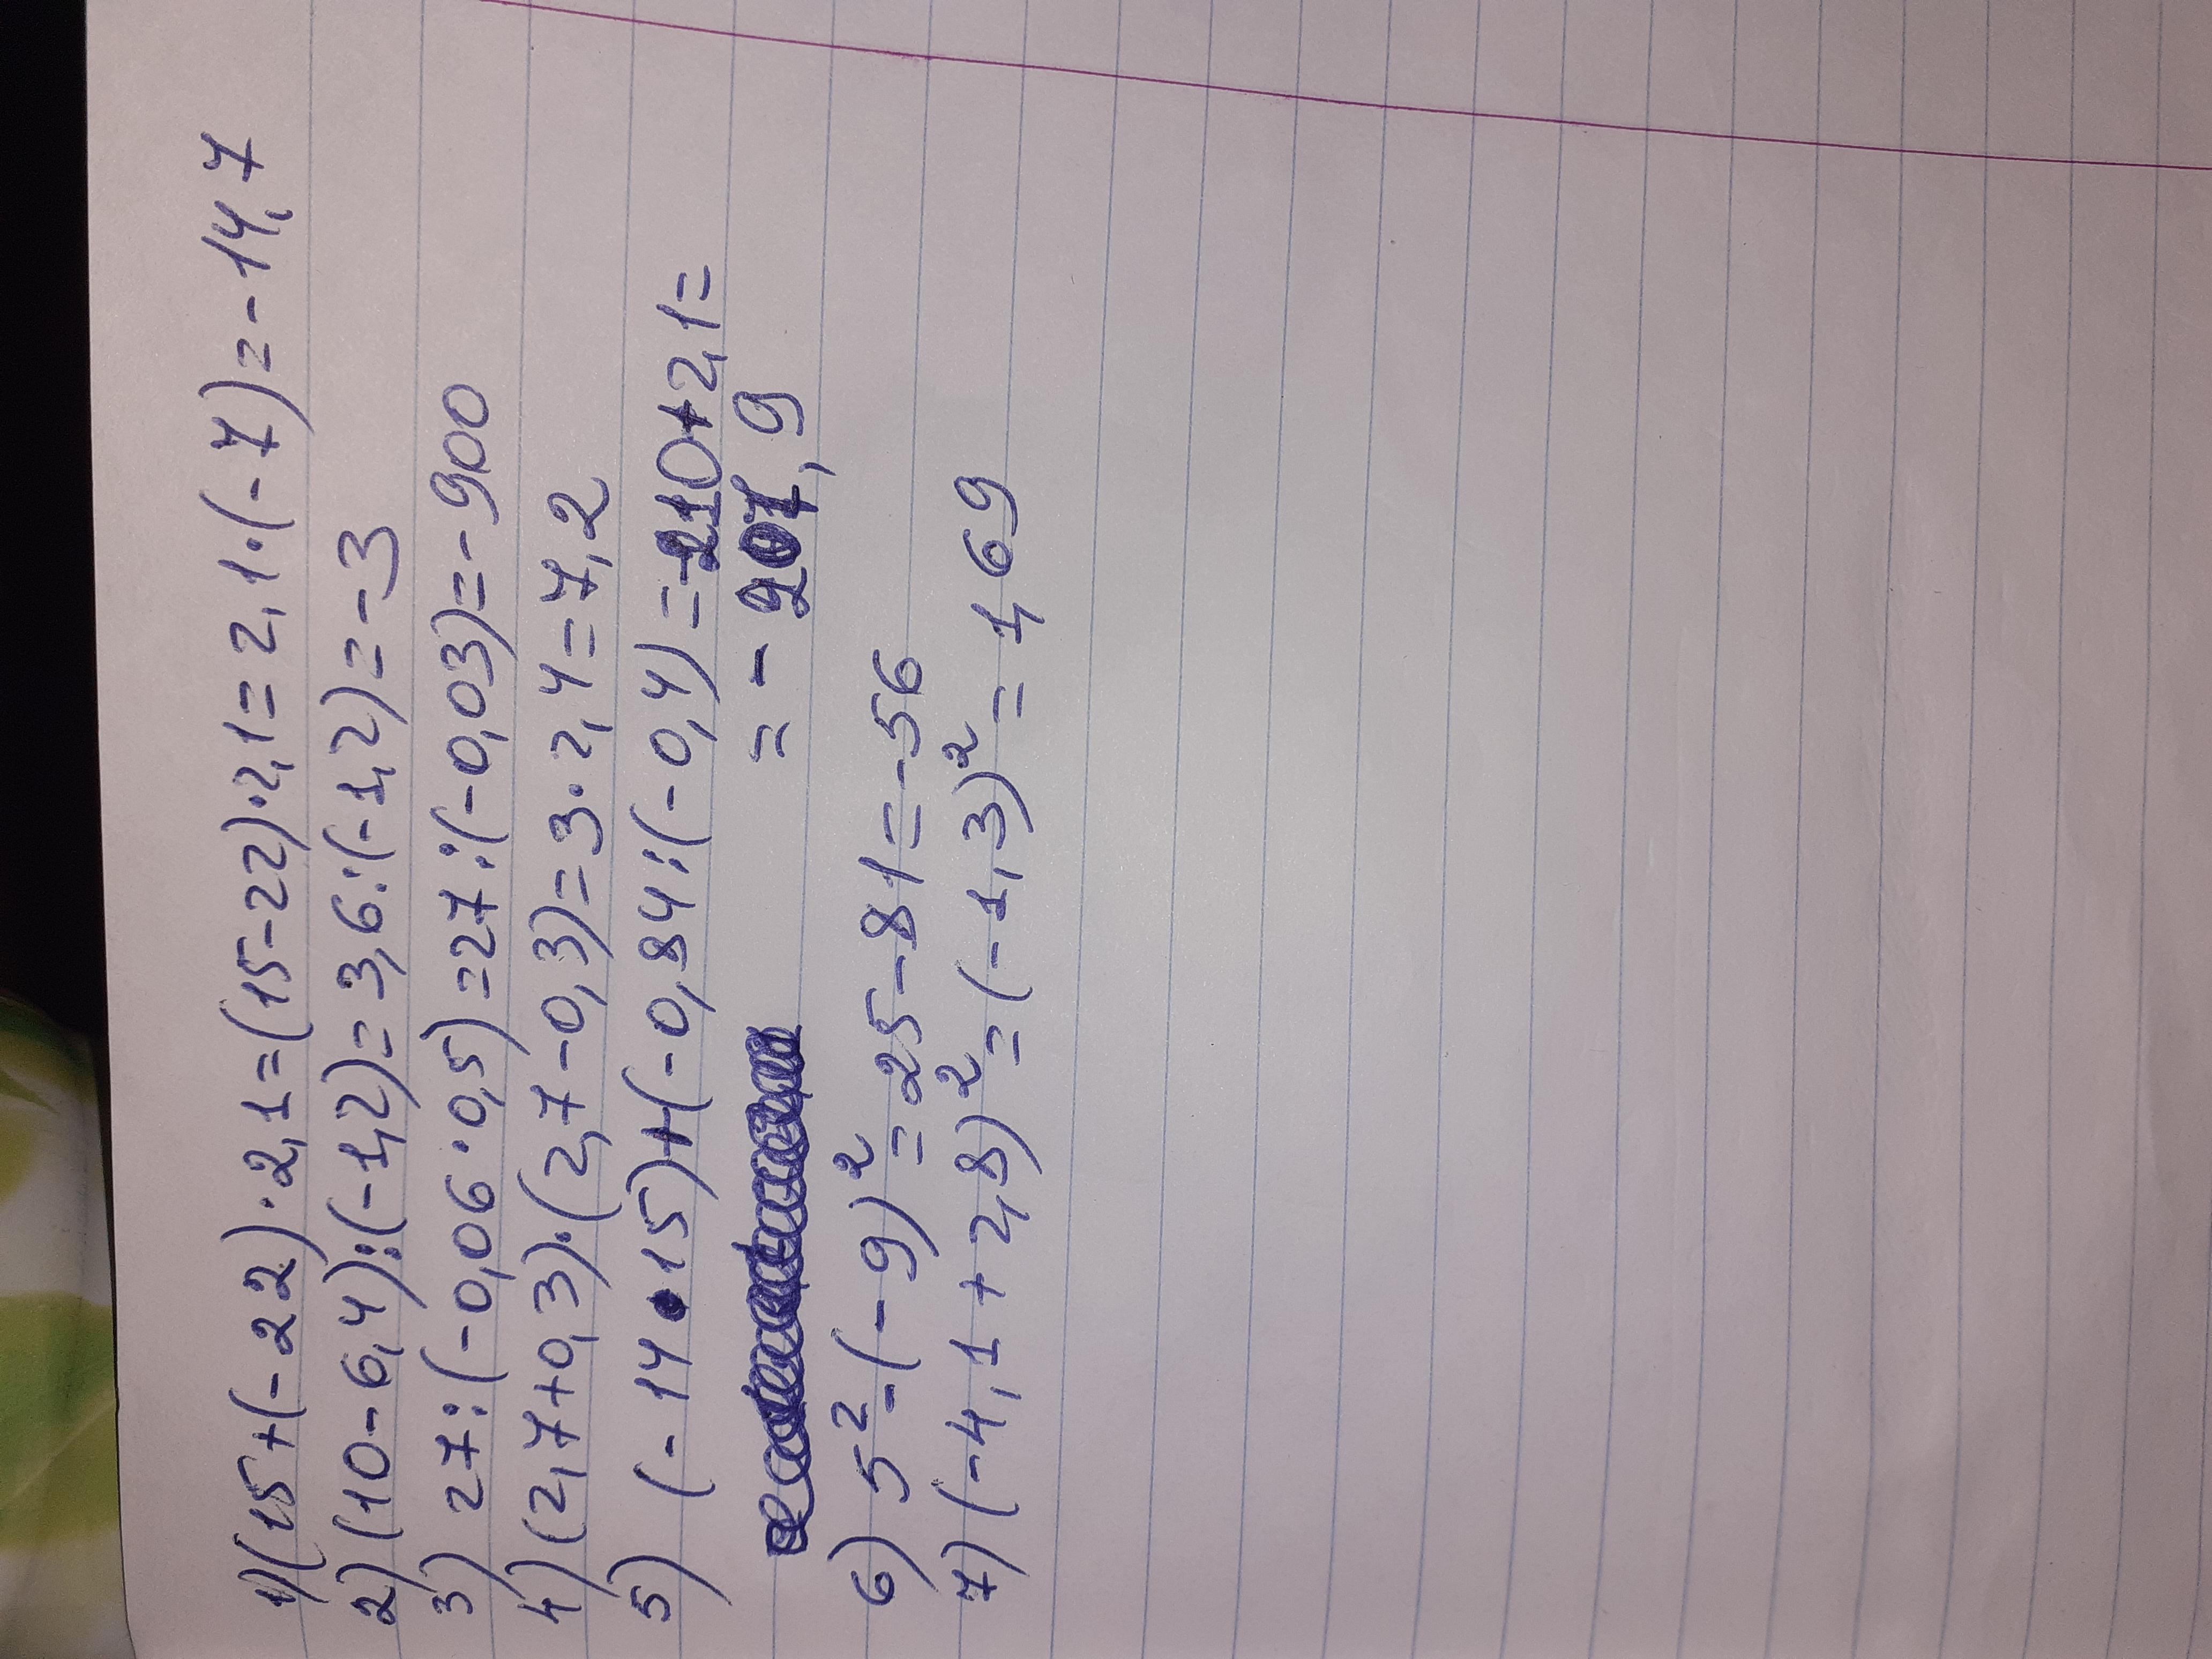 1)(15+(-22)·2,1=(15-22)·2,1=2,1·(-7)=-14,7
2)(10-6,4):(-1,2)=3,6:(-1,2)=-3
3) 27:(-0,06·0,5)=27:(-0,03)=-900
4)(2,7+0,3)·(2,7-0,3)=3·2,4=7,2
5) (-14·15)+(-0,84:(-0,4)=-210+2,1=
=-207,9
6) 5²-(-9)²=25-81=-56
7)(-4,1+2,8)²=(-1,3)²=1,69